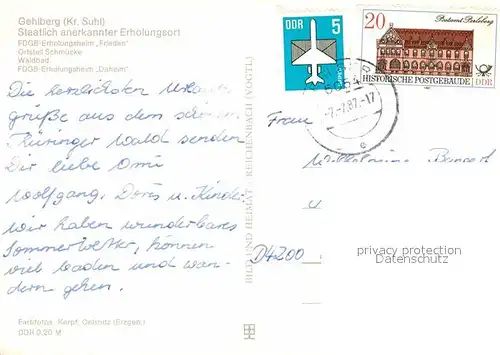 Gehlberg (Kr. Suhl)
Staatlich anerkannter Erholungsort
FDGB-Erholungsheim „Frieden"
Ortsteil Schmücke
Waldbad
FDGB-Erholungsheim „Daheim"
Die herzlichsten Urlaubs-
grüße aus dem schönen
Thüringer Wald senden
Dir liebe Omi
Wolfgang, Doris u. Kinder
wir haben wunderbares
Sommerwetter, können
viel baden und wan-
dern gehen.
Farbfotos: Karpf, Oelsnitz (Erzgeb.)
DDR 0,20 M
BILD UND HEIMAT REICHENBACH (VOGTL)
DDR 5
20 Postamt Perleberg
HISTORISCHE POSTGEBÄUDE DDR
-7.-7.87.-17
Frau
D4200
privacy protection
Datenschutz